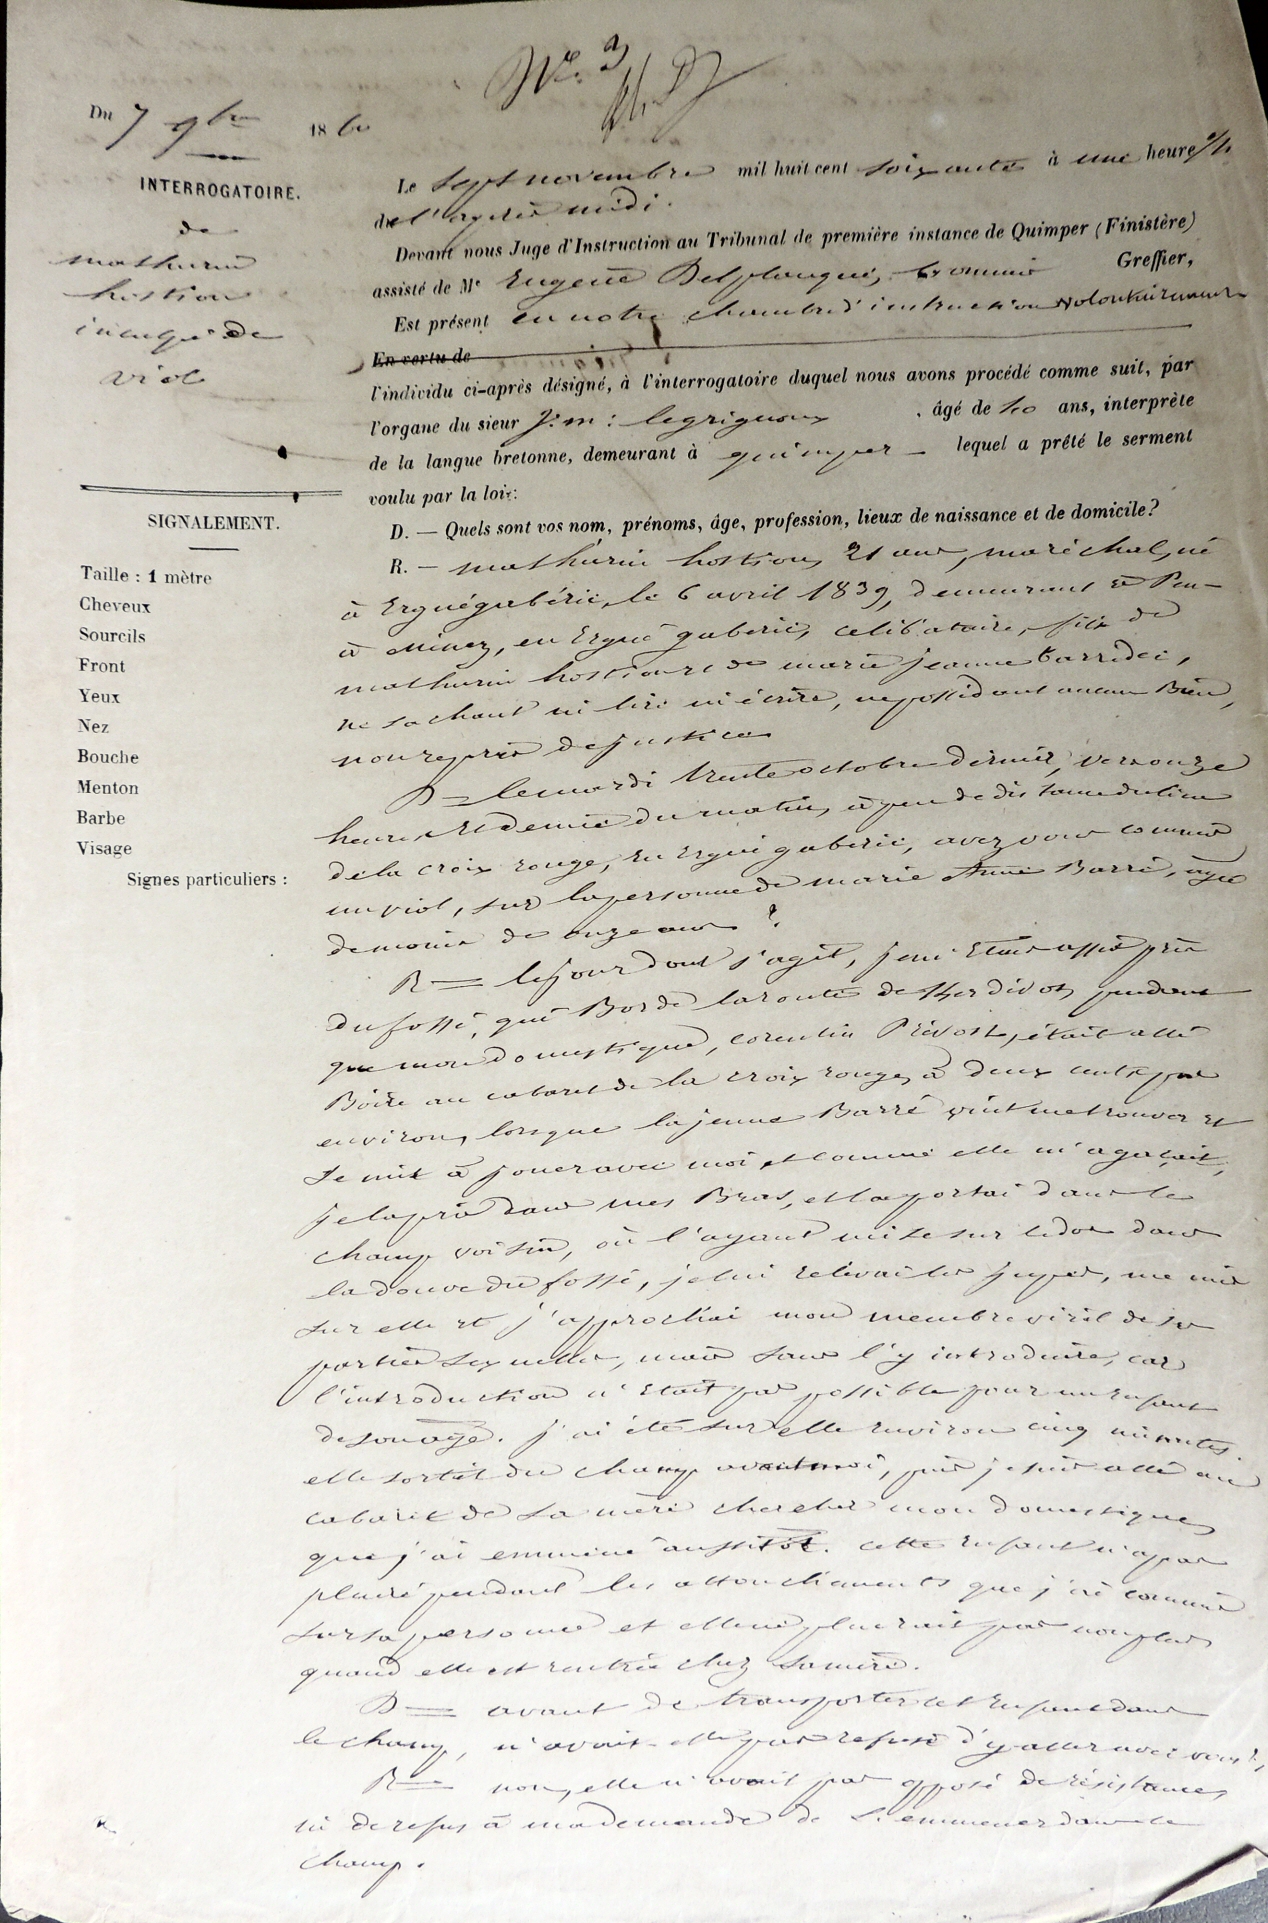 Nº. 3
Du 7 9bre 1860
INTERROGATOIRE.
de
mathurin
hostiou
inculpé de
viol
SIGNALEMENT.
Taille : 1 mètre
Cheveux
Sourcils
Front
Yeux
Nez
Bouche
Menton
Barbe
Visage
Signes particuliers :
Le sept novembre mil huit cent soixante à une heure
de l'après midi.
Devant nous Juge d'Instruction au Tribunal de première instance de Quimper (Finistère)
assisté de Me Eugène Delplanque, commis Greffier,
Est présent en notre chambre d'instruction volontairement
En vertu de
l'individu ci-après désigné, à l'interrogatoire duquel nous avons procédé comme suit, par
l'organe du sieur J. m : legrignoux , âgé de 40 ans, interprète
de la langue bretonne, demeurant à quimper lequel a prêté le serment
voulu par la loi :
D. — Quels sont vos nom, prénoms, âge, profession, lieux de naissance et de domicile?
R. — mathurin hostiou, 21 ans, maréchal, né
à Erguégabéric, le 6 avril 1839, demeurant à Pen-
a minez, en Ergué gabéric, célibataire, fils de
mathurin hostiou et de marie jeanne
ne sachant ni lire ni écrire, ne possédant aucun Bien,
non repris de justice
D = le mardi trente octobre dernier, vers onze
heures Et demie du matin, à peu de distance du lieu
de la croix rouge, en Ergué gabéric, avez vous commis
un viol, sur la personne de marie Anne Barré, âgée
de moins de onze ans ?
R = le jour dont s'agit, j'étais assis près
du fossé, qui Borde la route de Kerdévot, pendant
que mon domestique, corentin Prévost, était allé
Boire au cabaret de la croix rouge, à deux cents pas
environ, lorsque la jeune Barré vint me trouver et
se mit à jouer avec moi, et comme elle m'agaçait,
je la pris dans mes Bras, et la portai dans le
champ voisin, où l'ayant mise sur le dos dans
la douve du fossé, je lui relevai les jupes, me mis
sur elle et j'approchai mon membre viril de ses
parties sexuelles, mais sans l'y introduire, car
l'introduction n'était pas possible pour un Enfant
de son âge. j'ai été sur elle Environ cinq minutes
elle sortit du champ avant moi, puis je suis allé au
cabaret de sa mère chercher mon domestique,
que j'ai emmené aussitôt. cette Enfant n'a pas
pleuré pendant les attouchements que j'ai commis
sur sa personne et elle ne pleurait pas non plus
quand elle est rentrée chez sa mère.
D = avant de transporter cet Enfant dans
le champ, n'avait-elle pas refusé d'y aller avec vous ?
R = non, elle n'avait pas opposé de résistance,
ni de refus à ma demande de l'emmener dans le
champ.